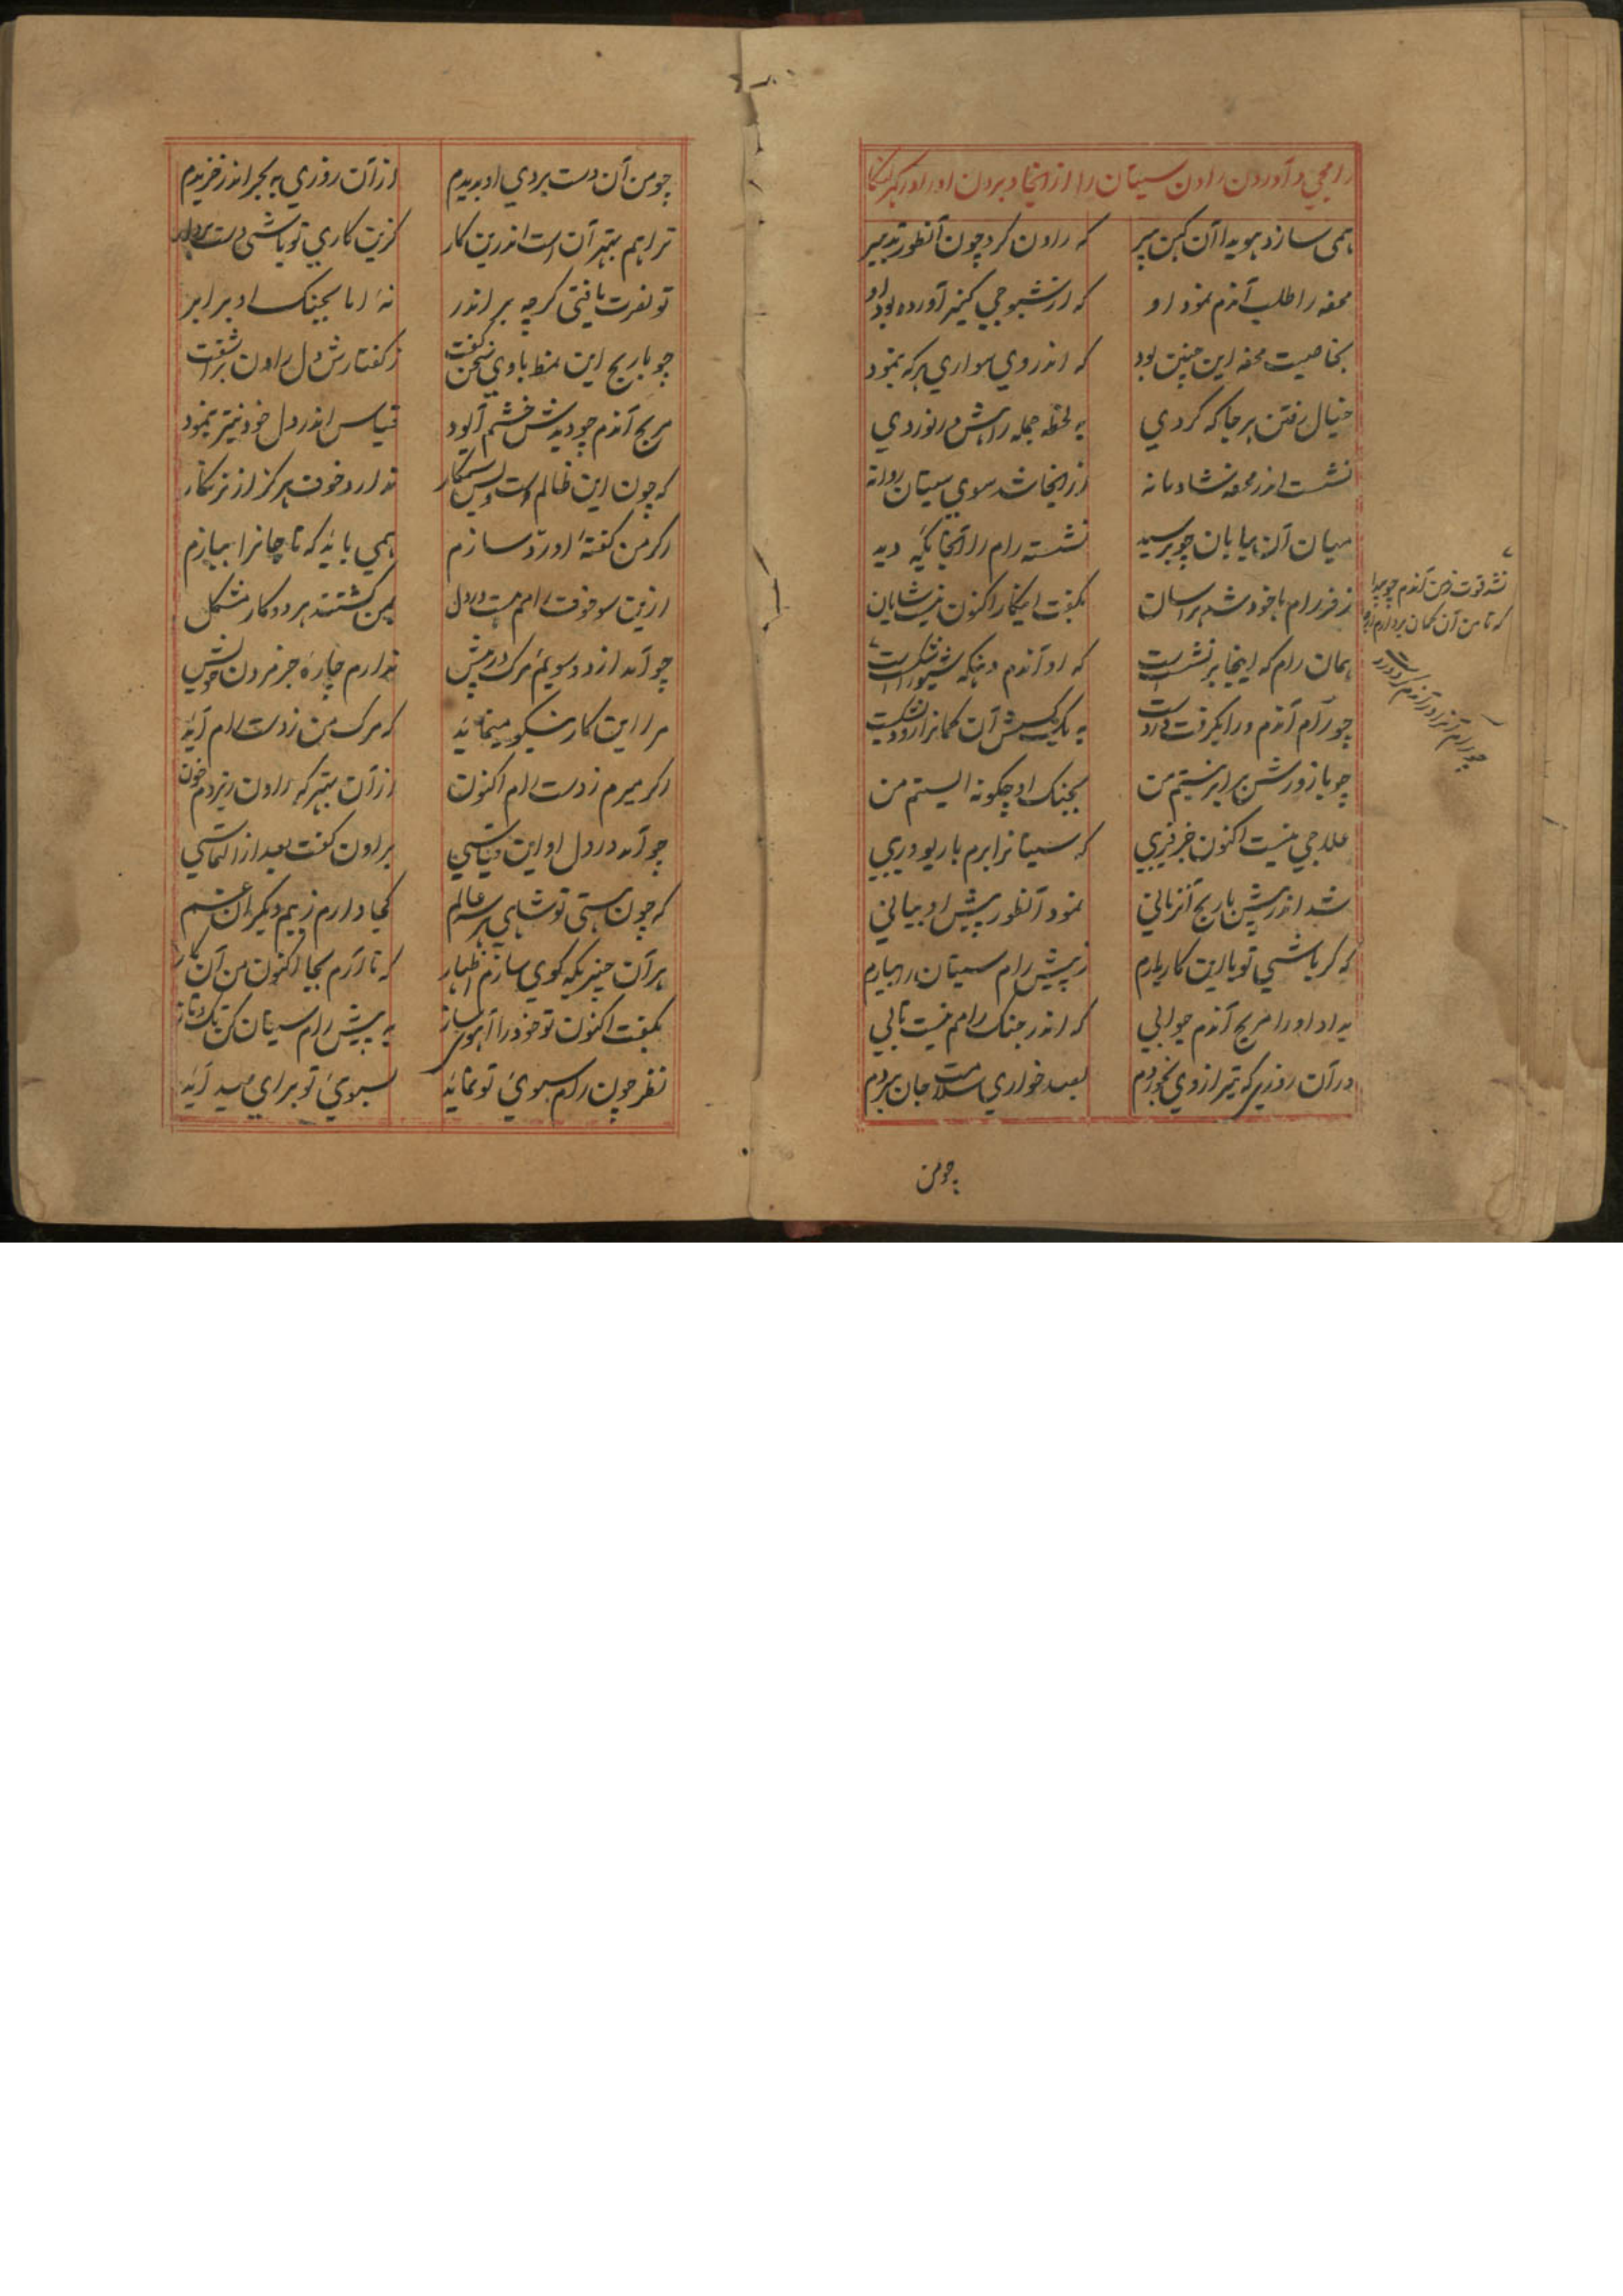 رامجی و آوردن راون سیتان را از انجا و بردن او را در
همی سازد هویدا آن کهن پیر که راون کرد چون آنطور تدبیر
محفه را طلب آندم نمود او که از شیوجی کبیر آورده بود او
بخاصیت محفه این چنین بود که اندر وی سواری هر که بنمود
خیال رفتن هر جا که کردی به لحظه جمله راهش در نوردی
نشست اندر محفه شادمانه از انجا شد سوی سیتان روانه
میان آن بیابان چو برسید نشسته رام را آنجایکه دید
ز فر رام با خود شد هراسان بگفت اینکار اکنون نیست شایان
همان رام که اینجا بر نشست است که او آندم دهنکه شیو شکست است
چو رام آندم ورا بکرفت در دست به یک کشش آن کمانرا زود بشکست
چو با زورش برابر نیستم من بجنک او چکونه ایستم من
علاجی نیست اکنون جز فریبی که سیتانرا برم با ریو و ریبی
شد اندر پیش باریج آنزمانی نمود آنطور پیش او بیانی
که کر باشی تو با این کار یارم ز پیش رام سیتان را بیارم
بداد او را مریج آندم جوابی که اندر جنک رامم نیست تابی
در آن روزیکه تیر از وی بخوردم بصد خواری سلامت جان ببردم
نشد قوت ز من آندم چو پیدا
که تا من آن کمان بردارم از جا
چو رام آنرا در آندم کرد در دست
چو من
چو من آن دست بردی او بدیدم از آن روزی به بحر اندر خزیدم
ترا هم بهتر آن است اندرین کار کزین کاری تو باشی دست بردار
تو نصرت یافتی کرچه بر اندر نه اما بجنک او برابر
چو باریج این نمط با وی سخن کفت ز کفتارش دل راون بر اشفت
مریج آندم چو دیدش خشم آلود قیاس اندر دل خود نیز بنمود
که چون این ظالم است و بس ستمکار ندارد خوف هرکز از نرنکار
اکر من کفتهٔ او رد سازم همی باید که تا جانرا ببازم
ازین سو خوف رامم هست در دل بمن کشتند هر دو کار مشکل
چو آمد از دو سویم مرک در پیش ندارم چارهٔ جز مردن خویش
مرا این کار نیکو مینماید که مرک من ز دست رام آید
اکر میرم ز دست رام اکنون از آن بهتر که راون ریزدم خون
چو آمد در دل او این قیاسی براون کفت بعد از التماسی
که چون هستی تو شاهی بر سه عالم کجا دارم ز بیم دیکران غم
هر آن چیزیکه کوی سازم اظهار که تا آرم بجا اکنون من آن کار
بگفت اکنون تو خود را آهوی ساز به پیش رام سیتان کن تک و تاز
نظر چون رام سوی تو نماید بسوی تو برای صید آید